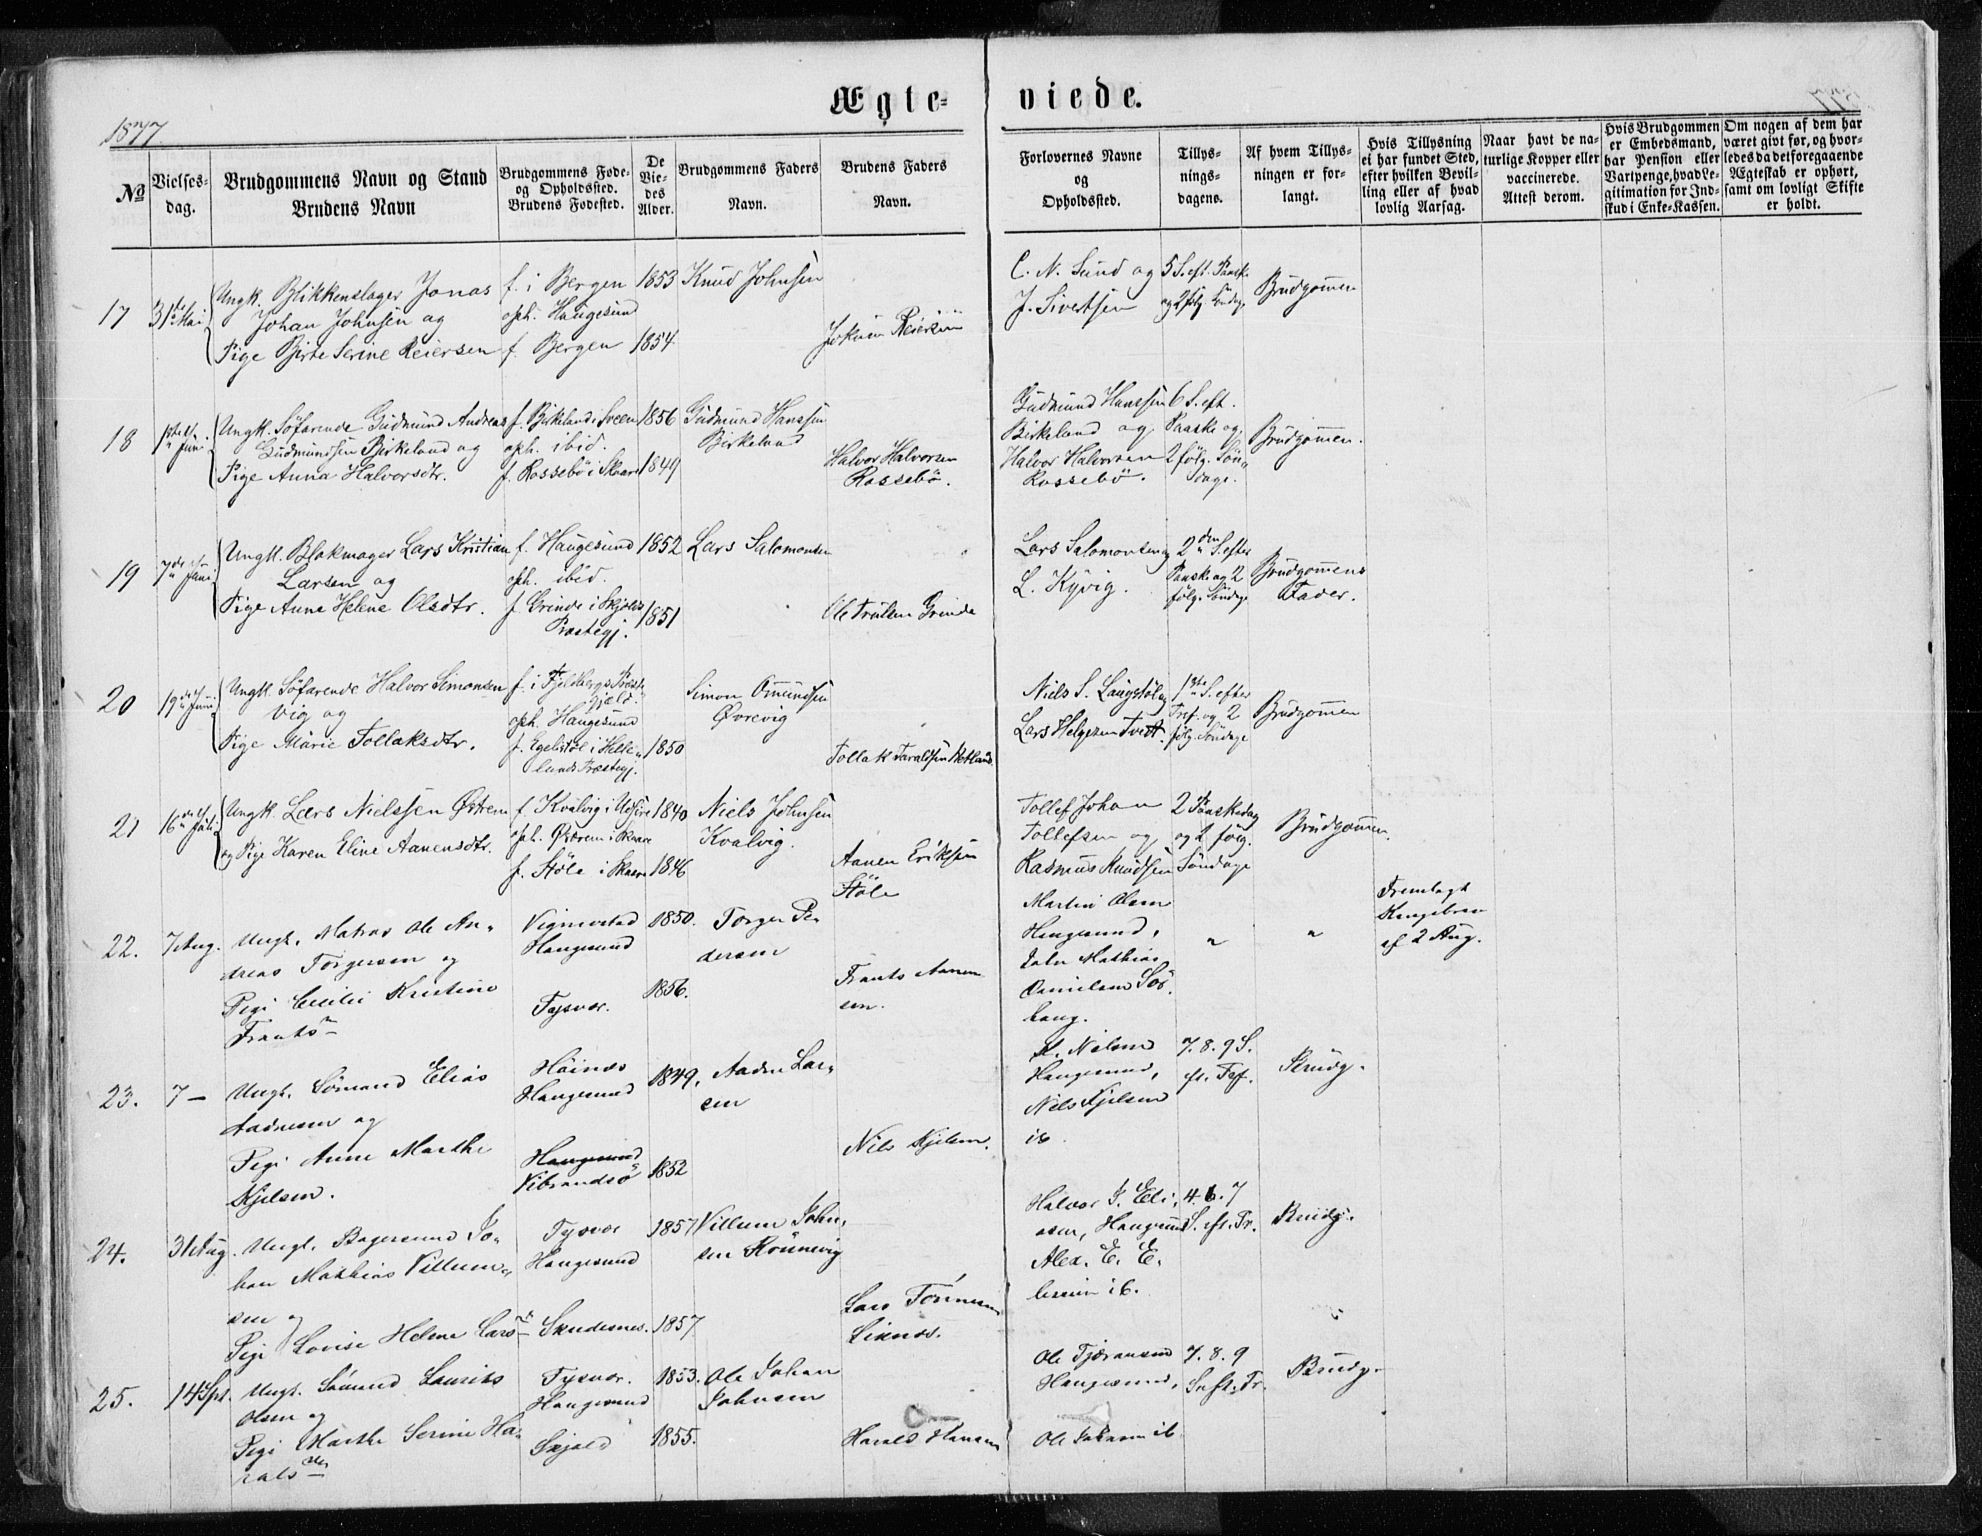 Ægte= viede.
1877.
№
Vielses-
dag.
Brudgommens Navn og Stand
Brudens Navn
Brudgommens Føde-
og Opholdssted.
Brudens Fødested.
De
Vie-
des
Alder.
Brudgommens Faders
Navn.
Brudens Faders
Navn.
Forlovernes Navne
og
Opholdssted.
Tillys-
nings-
dagene.
Af hvem Tillys-
ningen er for-
langt.
Hvis Tillysning
ei har fundet Sted,
efter hvilken Bevil-
ling eller af hvad
lovlig Aarsag.
Naar havt de na-
turlige Kopper eller
vaccinerede.
Attest derom.
Hvis Brudgommen
er Embedsmand,
har Pension eller
Vartpenge, hvad Le-
gitimation for Ind-
skud i Enke-Kassen.
Om nogen af dem har
været givt før, og hvor-
ledes da det foregaaende
Ægteskab er ophørt,
samt om lovligt Skifte
er holdt.
17
31te Mai
Ungk. Blikkenslager Jonas
Johan Johnsen og
Pige Birte Serine Reiersen
f. i Bergen
oph. Haugesund
f. Bergen
1853
1854
Knud Johnsen
Jokum Reiersen
C. N. Sund og
J. Sivertsen
5 S. eft. Paask.
og 2 følg. Søndage
Brudgommen
18
1ste Juni
Ungk. Søfarende Gudmund Andreas
Gudmundsen Birkeland og
Pige Anna Halvorsdtr.
f. Birkeland i Sveen
oph. ibid.
f. Rossebø i Skaare
1856
1849
Gudmund Hanssen
Birkeland
Halvor Halvorsen
Rossebø.
Gudmund Hanssen
Birkeland og
Halvor Halvorsen
Rossebø.
6 S. eft.
Paaske og
2 følg. Søn-
dage.
Brudgommen.
19
7de Juni
Ungk. Blokmager Lars Kristian
Larsen og
Pige Anne Helene Olsdtr.
f. Haugesund
oph. ibid.
f. Grinde i Skjolds
Præstegj.
1852
1851
Lars Salomonsen
Ole Trulsen Grinde
Lars Salomonsen og
L. Kyvig.
2den S. efter
Paaske og 2
følg. Søndage
Brudgommens
Fader.
20
19de Juni
Ungk. Søfarende Halvor Simonsen
Vig og
Pige Marie Tollaksdtr.
f. i Fjeldbergs Præste-
gjæld.
oph. Haugesund
f. Egelstøl i Hette-
lands Præstegj.
1850
Simon Omundsen
Øvrevig
Tollak Taraldsen Hetland
Niels S. Langstøl og
Lars Helgesen Tvett.
1ste S. efter
Tref. og 2
følg. Søndage
Brudgommen
21
16de Juli
Ungk. Lars Nielssen Østrem
og Pige Karen Eline Aanensdtr.
f. Kvalvig i Udsire
oph. Østrem i Skaare
f. Støle i Skaare
1840
1846
Niels Johnsen
Kvalvig.
Aanen Eriksen
Støle
Tollef Johan
Tollefsen og
Rasmus Knudsen
2 Paaskedag
og 2 følg.
Søndage
Brudgommen.
22.
7 Aug.
Ungk. Matros Ole An-
dreas Torgersen og
Pige Cecilie Kristine
Frantsdtr
Vigmostad
Haugesund
Tysvær.
1850.
1856.
Torger Pe-
dersen
Frants Aanen-
sen.
Martin Olsen
Haugesund,
Mathias
Danielsen
haug.
"
"
Fremlagt
Kongebrev
af 2 Aug.
23.
7 —
Ungk. Sømand Elias
Aadnesen og
Pige Anne Marthe
Kjelsen.
Høines
Haugesund
Haugesund
Vibrandsø
1849.
1852
Aadne Lar-
sen
Nils Kjelsen.
Nilsen
Haugesund,
Nils Kjelsen
ib.
7. 8. 9 S.
eft. Tref.
Brudg.
24.
31 Aug.
Ungk. Bagersvend Jo-
han Mathias Villum-
sen og
Pige Lovise Helene Larsdtr
Tysvær
Haugesund
Skudesnes.
1857
1857
Villum John-
sen Rønnevig
Lars Tønnesen
Liknes.
Halvor P. Eli-
asen, Haugesund
Alex. E. E.
ib.
4. 6. 7
S. eft. Tr.
Brudg.
25.
14 Spt.
Ungk. Sømand Laurits
Olsen og
Pige Marthe Serine Ha-
raldsdtr
Tysvær.
Haugesund
Skjold
1853.
1855.
Ole Johan
Johnsen
Harald Hansen
Ole Tjøransen
Haugesund,
Ole Johnsen ib.
7. 8. 9
S. eft. Tr.
Brudg.